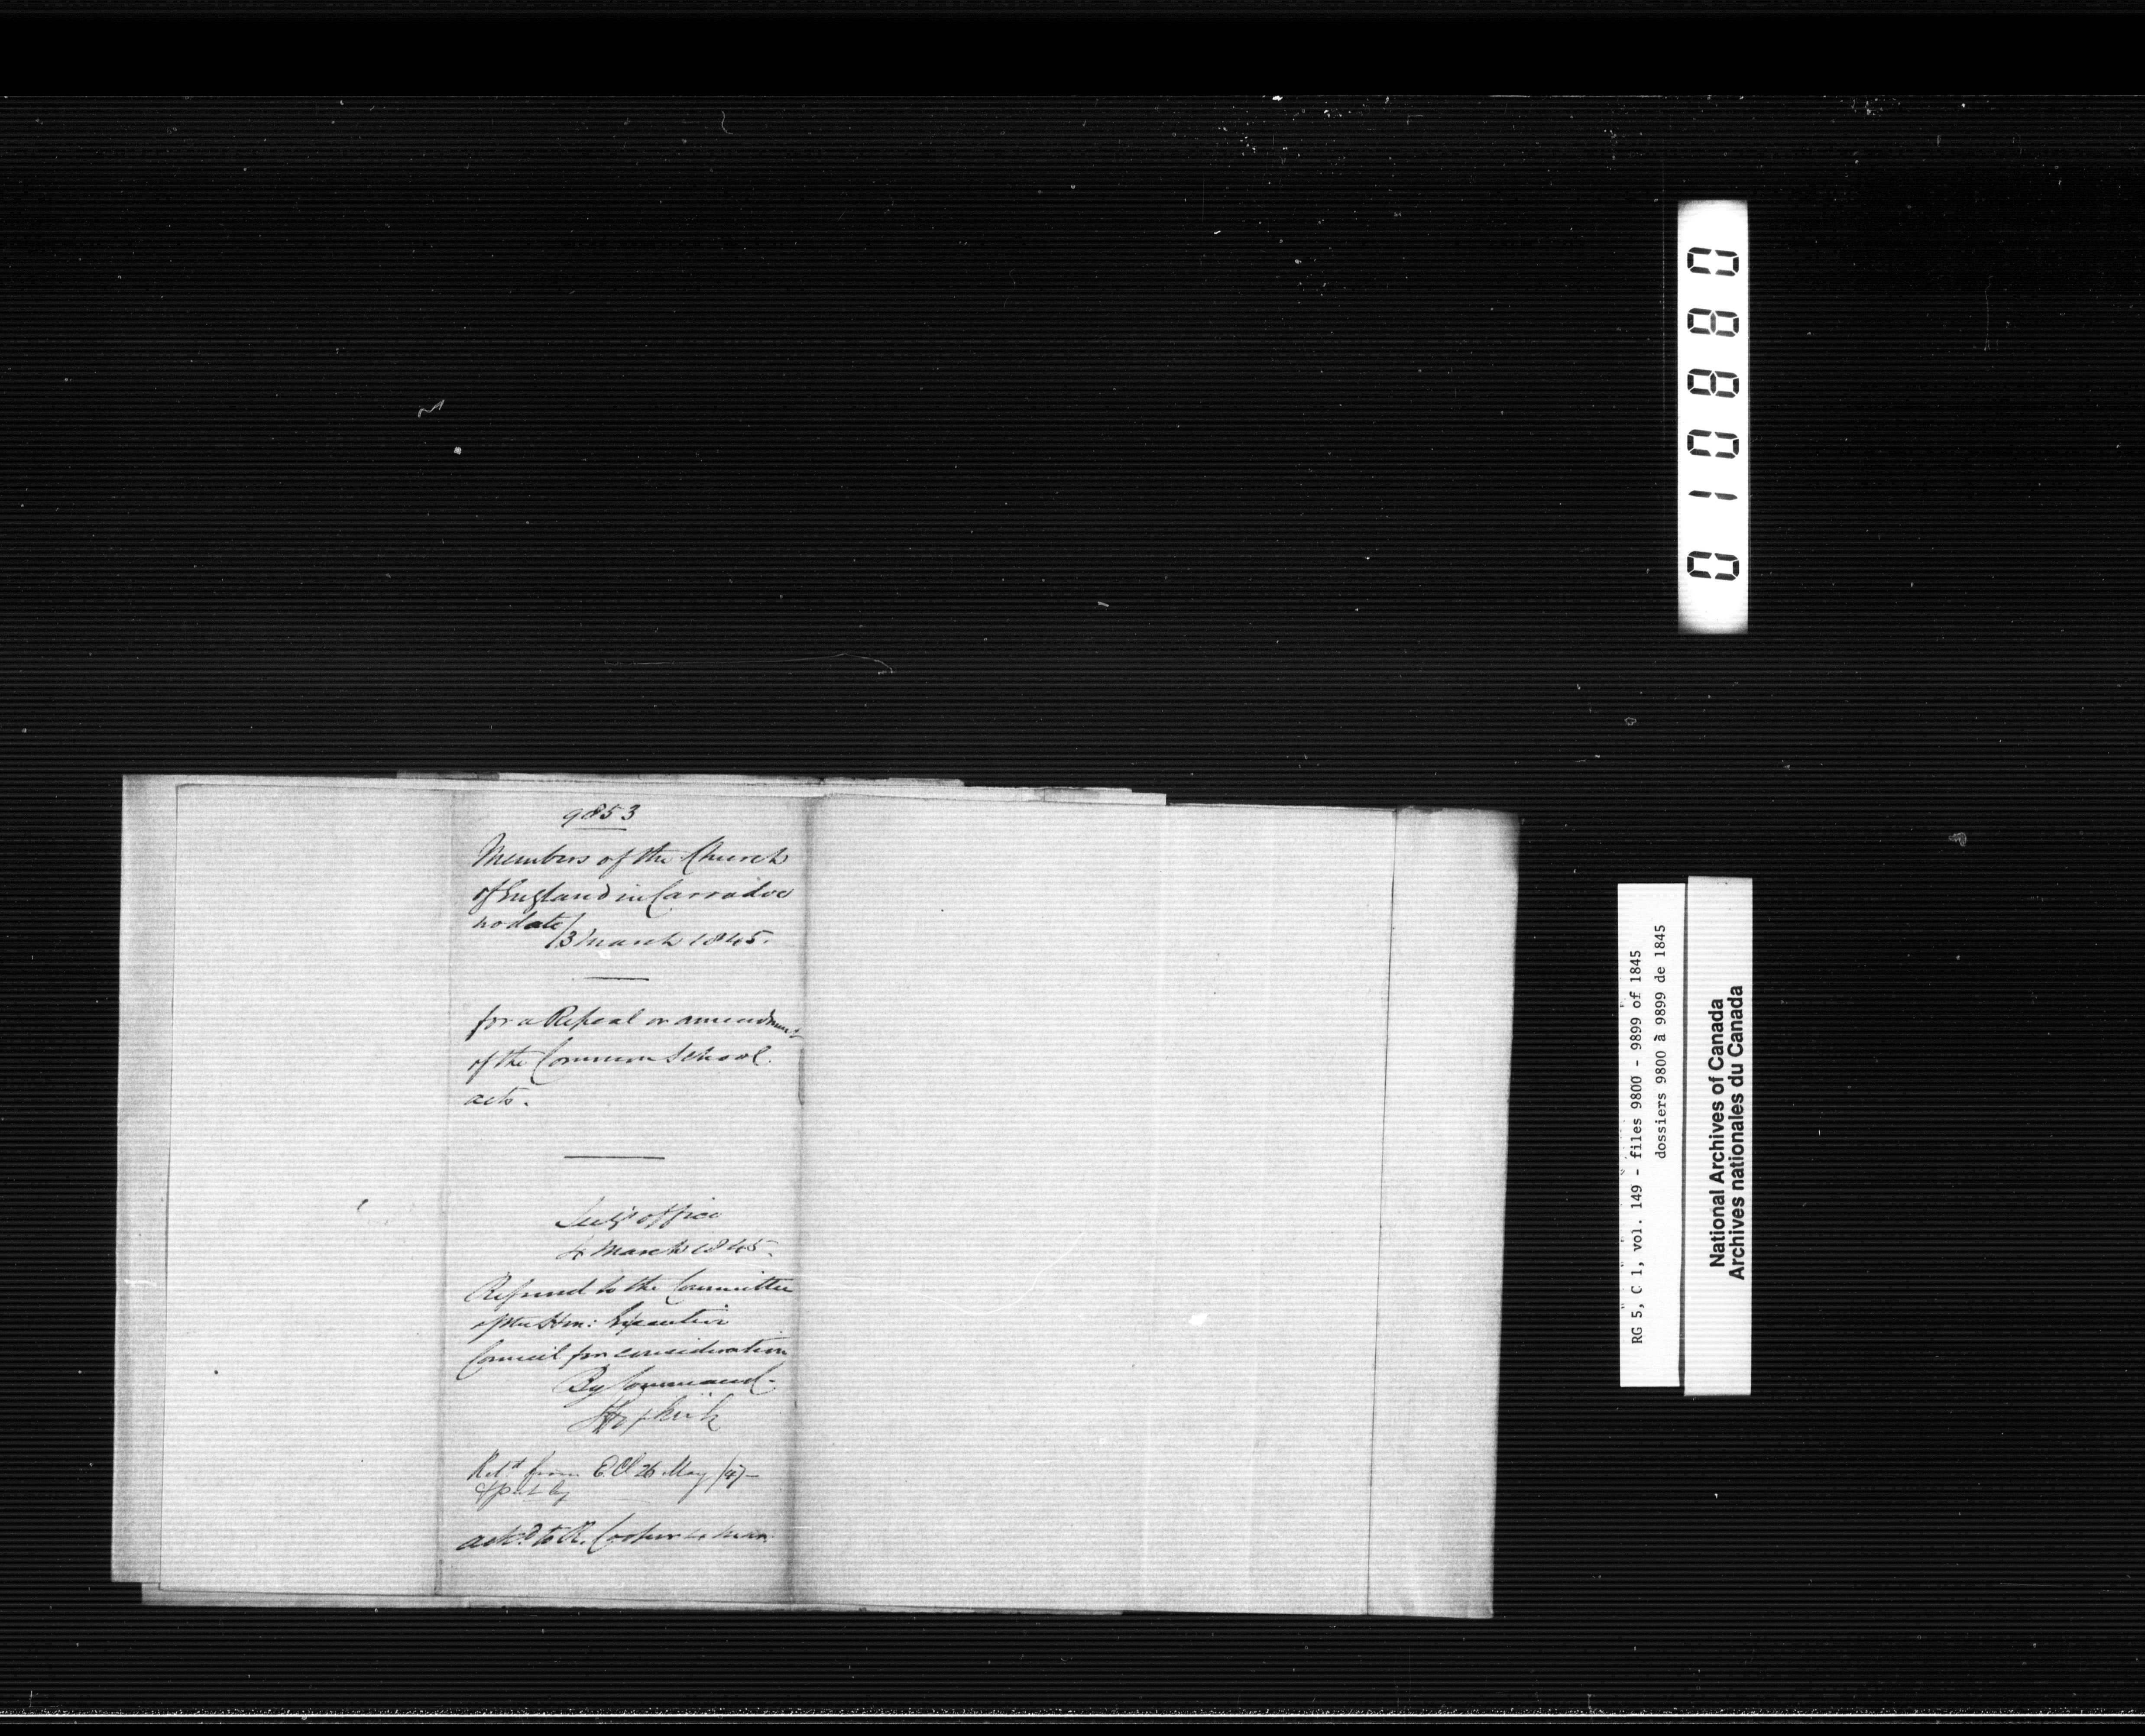 9853
Members of the Church
of England in Carradoc
no date/
3 March 1845.
for a Repeal or amendment
of the Common School
acts.
Secy's office
4 March 1845.
Referred to the Committee
of the Hon: Executive
Council for consideration
By Command.
Hopkirk
Ret.d from E.C. 26 May /47
ack.d to R. Cooper 4 Mar.
010880
RG 5, C 1, vol. 149 - files 9800 - 9899 of 1845
dossiers 9800 à 9899 de 1845
National Archives of Canada
Archives nationales du Canada